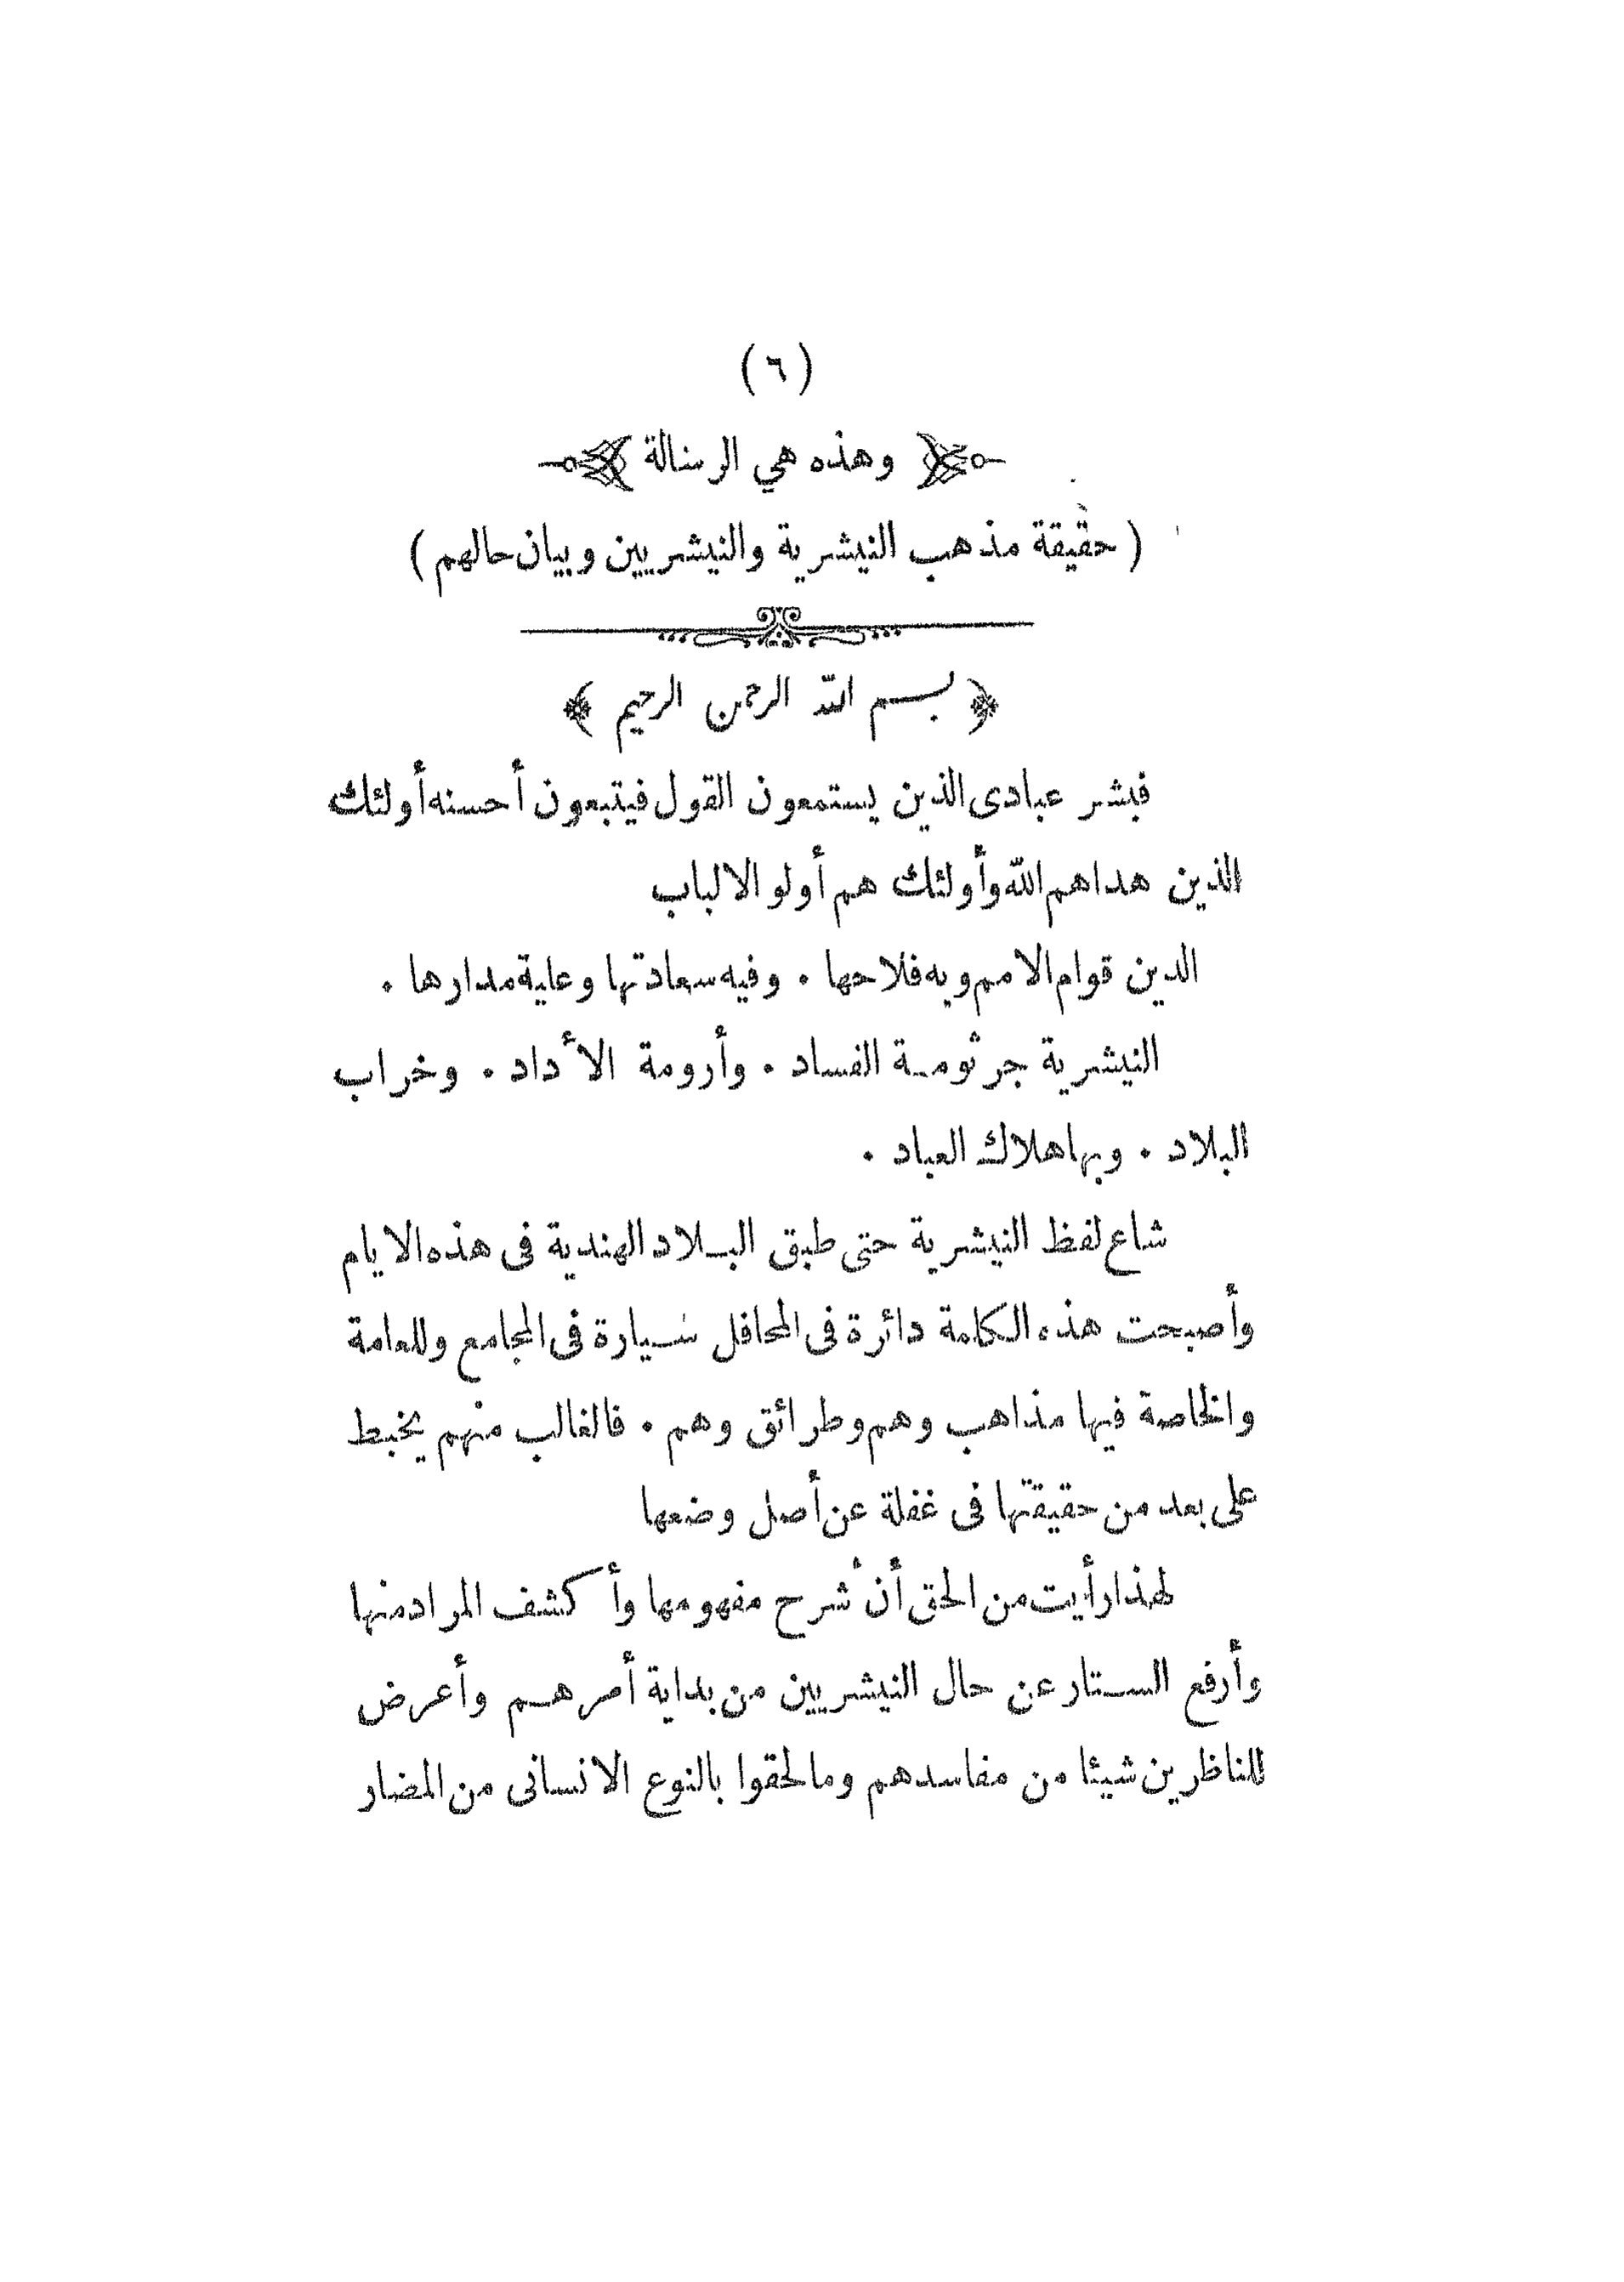 (٦)
وهذه هي الرسالة
(حقيقة مذهب النيشرية والنيشريين وبيان حالهم)
﴿بسم الله الرحمن الرحيم﴾
فبشر عبادى الذين يستمعون القول فيتبعون أحسنه أولئك
الذين هداهم الله وأولئك هم أولو الالباب
الدين قوام الامم وبه فلاحها . وفيه سعادتها وعليه مدارها .
النيشرية جرثومة الفساد . وأرومة الأداد . وخراب
البلاد . وبها هلاك العباد .
شاع لفظ النيشرية حتى طبق البلاد الهندية فى هذه الايام
وأصبحت هذه الكلمة دائرة فى المحافل سيارة فى المجامع وللعامة
والخاصة فيها مذاهب وهم وطرائق وهم . فالغالب منهم يخبط
على بعد من حقيقتها فى غفلة عن أصل وضعها
لهذا رأيت من الحق أن شرح مفهومها وأكشف المراد منها
وأرفع الستار عن حال النيشريين من بداية أمرهم وأعرض
للناظرين شيئا من مفاسدهم وما لحقوا بالنوع الانسانى من المضار